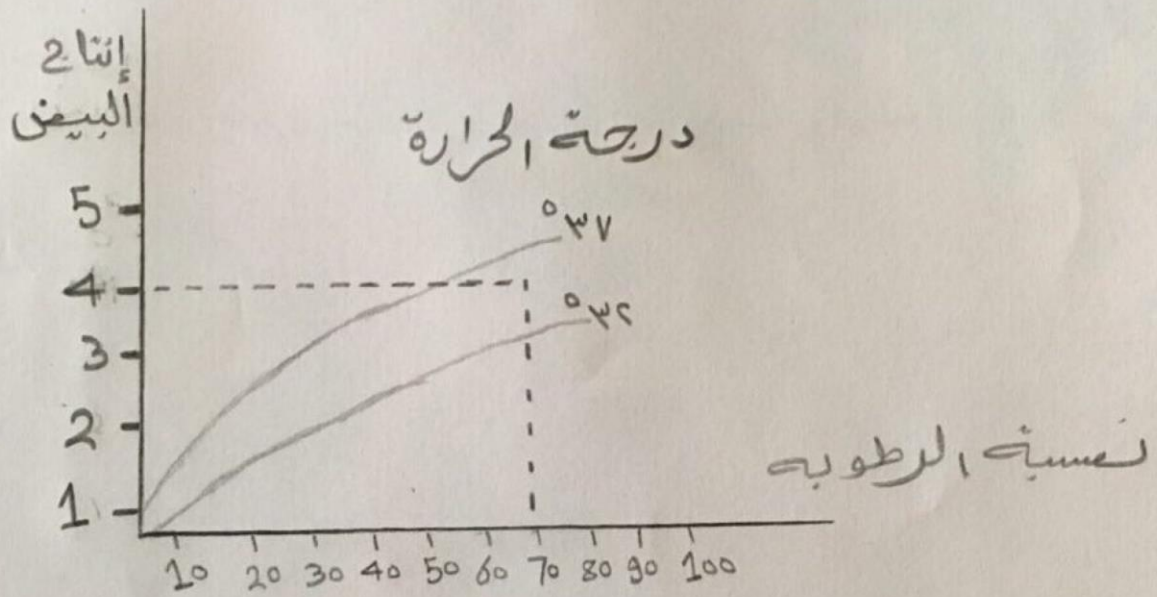 إنتاج
البيض
درجة الحرارة
5
°٣٧
4
°٣٢
3
2
نسبة الرطوبه
1
10 20 30 40 50 60 70 80 90 100